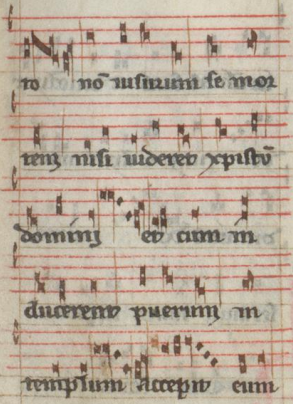 to nō uisurum se mor
tem nisi uideret xpistū
domini et cum in
ducerent puerum in
templum accepit eum